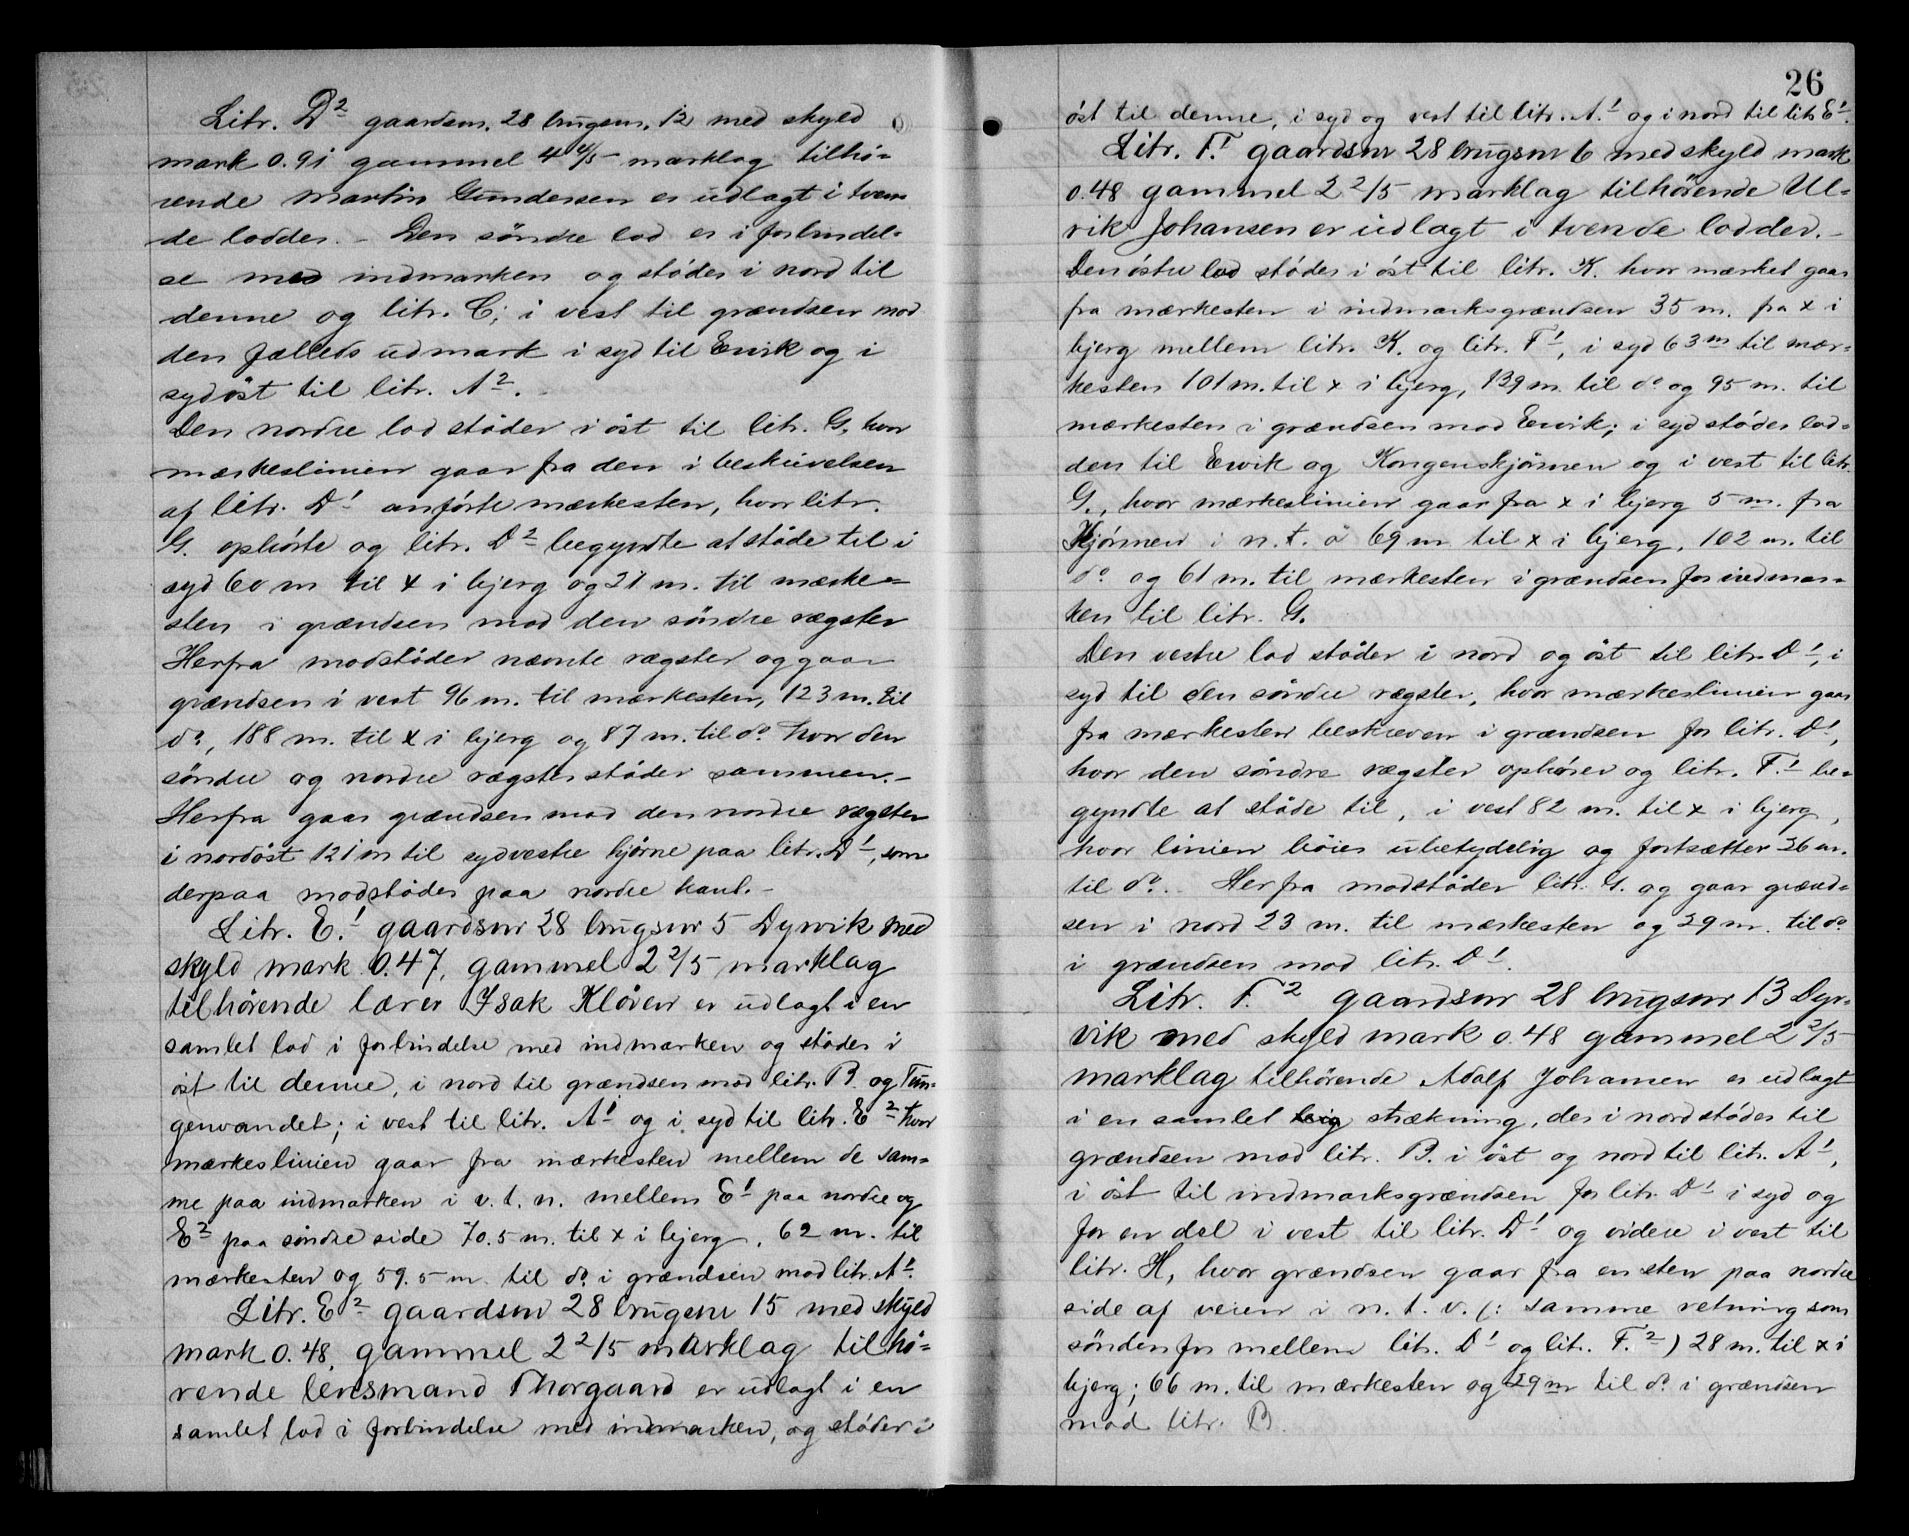 Litr. D² gaardsn. 28 brugsn. 12 med skyld
mark 0.91 gammel 4 4/5 marklag tilhø-
rende Martin Gundersen er udlagt i tven
de lodder. - Den søndre lod er i forbindel-
se med indmarken og støder i nord til
denne og litr. C; i vest til grændsen mod
den fælleds udmark i syd til Ervik og i
sydøst til litr. A².
Den nordre lod støder i øst til litr. G, hvor
mærkeslinien gaar fra den i beskrivelsen
af litr. D¹ anførte mærkesten, hvor litr.
G. ophørte og litr. D² begyndte at støde til i
syd 60 m til x i bjerg og 21 m. til mærke-
sten i grændsen mod den søndre rægster
Herfra modstøder nævnte rægster og gaar
grændsen i vest 96 m. til mærkesten, 123 m. til
do, 188 m. til x i bjerg og 87 m. til do hvor den
søndre og nordre rægster støder sammen. -
Herfra gaar grændsen mod den nordre rægster
i nordøst 121 m til sydvestre hjørne paa litr. D¹, som
derpaa modstøder paa nordre kant. -
Litr. E.¹ gaardsnr 28 brugsnr 5 Dyrvik med
skyld mark 0.47, gammel 2 2/5 marklag
tilhørende lærer Isak Kløven er udlagt i en
samlet lod i forbindelse med indmarken og støder i
øst til denne, i nord til grændsen mod litr. B og Tun-
genvandet; i vest til litr. A¹ og i syd til litr. E² hvor
mærkeslinien gaar fra mærkesten mellem de sam-
me paa indmarken i v. t. n. mellem E¹ paa nordre og
E² paa søndre side 70.5 m. til x i bjerg, 62 m. til
mærkesten og 59.5 m til do i grændsen mod litr. A¹.
Litr. E² gaardsnr 28 brugsnr 15 med skyld
mark 0.48, gammel 2 2/5 marklag tilhø-
rende lensmand Thorgaard er udlagt i en
samlet lod i forbindelse med indmarken, og støder i
26
øst til denne, i syd og vest til litr. A.¹ og i nord til litr E¹.
Litr. F.¹ gaardsnr 28 brugsnr 6 med skyld mark
0.48 gammel 2 2/5 marklag tilhørende Ul-
rik Johansen er udlagt i tvende lodder. -
Den østre lod støder i øst til litr. K. hvor mærket gaar
fra mærkesten i indmarksgrændsen 35 m. fra x i
bjerg mellem litr. K. og litr. F¹, i syd 63 m til mær-
kesten 101 m. til x i bjerg, 139 m. til do og 95 m. til
mærkesten i grændsen mod Ervik; i syd støder lod-
den til Ervik og Kongenskjønnen og i vest til litr.
G., hvor mærkeslinien gaar fra x i bjerg 5 m. fra
Kjønnen i n. t. ø 69 m til x i bjerg, 102 m. til
do og 61 m. til mærkesten i grændsen for indmar-
ken til litr. G.
Den vestre lod støder i nord og øst til litr. D¹, i
syd til den søndre rægster, hvor mærkeslinien gaar
fra mærkesten beskreven i grændsen for litr. D¹,
hvor den søndre rægster ophører og litr. F.¹ be-
gyndte at støde til, i vest 82 m. til x i bjerg,
hvor linien bøier ubetydelig og fortsætter 36 m.
til do. Herfra modstøder litr. G. og gaar grænd-
sen i nord 23 m. til mærkesten og 29 m. til do
i grændsen mod litr. D¹.
Litr. F.² gaardsnr 28 brugsnr 13 Dyr-
vik med skyld mark 0.48 gammel 2 2/5
marklag tilhørende Adolf Johansen er udlagt
i en samlet strækning, der i nord støder til
grændsen mod litr. B. i øst og nord til litr. A¹,
i øst til indmarksgrændsen for litr. D¹ i syd og
for en del i vest til litr. D¹ og videre i vest til
litr. H, hvor grændsen gaar fra en sten paa nordre
side af veien i n. t. v. (: samme retning som
søndenfor mellem litr. D¹ og litr. F.²) 28 m. til x i
bjerg; 66 m. til mærkesten og 29 m til do i grændsen
mod litr. B.